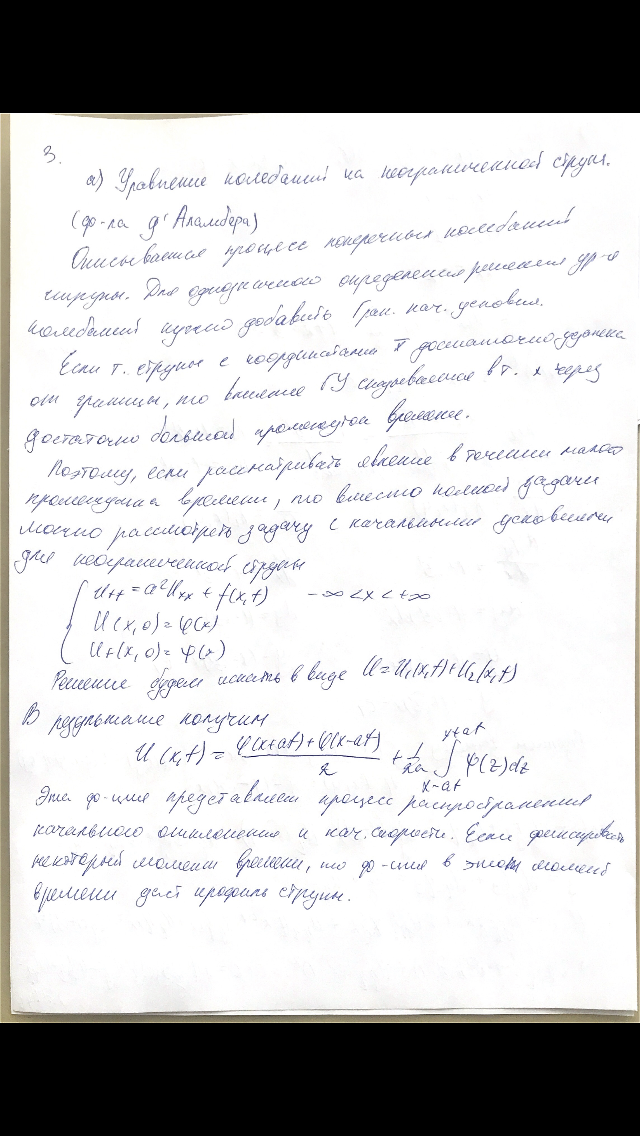 3.
а) Уравнение колебаний на неограниченной струн.
(ф-ла д'Аламбера)
Описывается процесс поперечных колебаний
струны. Для однозначного определения решения ур-е
колебаний нужно добавить Гран. нач. условия.
Если т. струны с координатами x̄ достаточно удалена
от границы, то влияние ГУ сказывается в т. x через
достаточно большой промежуток времени.
Поэтому, если рассматривать явление в течении малого
промежутка времени, то вместо полной задачи
можно рассмотреть задачу с начальными условиями
для неограниченной струны
{ Utt = a²Uxx + f(x,t) -∞ < x < +∞
U(x,0) = φ(x)
Ut(x,0) = ψ(x)
Решение будем искать в виде U = U₁(x,t) + U₂(x,t)
В результате получим
U(x,t) = (φ(x+at) + φ(x-at))/2 + 1/2a ∫_{x-at}^{x+at} ψ(z)dz
Эта ф-ция представляет процесс распространения
начального отклонения и нач. скорости. Если фиксировать
некоторый момент времени, то ф-ция в этот момент
времени даст профиль струны.